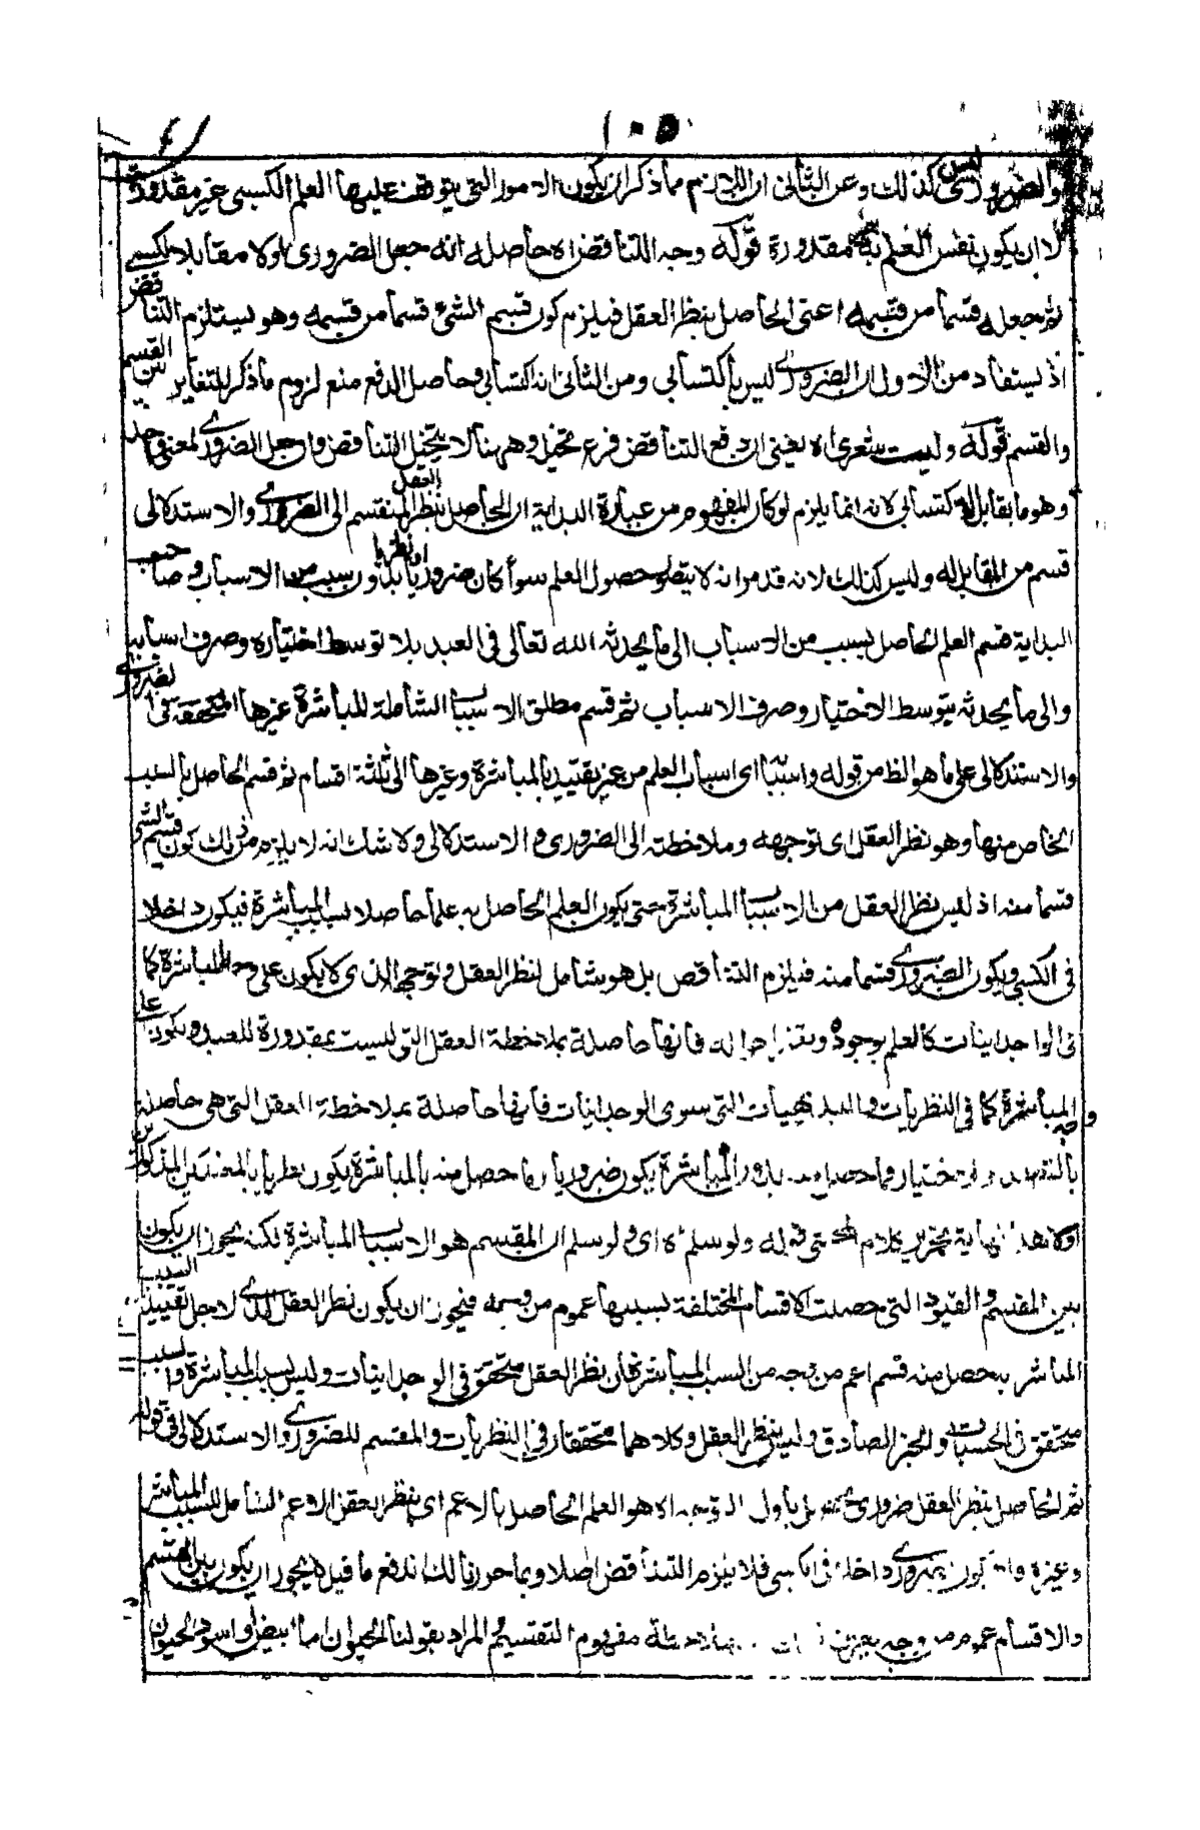 ١٠٥
والضروري ليس كذلك وعن الثاني ان اللازم مما ذكر ان يكون الامور التي يتوقف عليها العلم الكسبي غير مقدورة
لا ان يكون نفس العلم مقدورة قوله وجه التناقض اه حاصله انه جعل الضروري اولا مقابلا للكسبي
ثم جعله قسما من قسيمه اعني الحاصل بنظر العقل فيلزم كون قسيم الشيء قسما من قسيمه وهو يستلزم التناقض
اذ يستفاد من الاول ان الضروري ليس باكتسابي ومن الثاني انه اكتسابي وحاصل الدفع منع لزوم ما ذكر للتغاير بين القسيم
والقسم قوله وليت شعري اه يعني ان دفع التناقض فرع تخيله وههنا لا يتخيل التناقض وان جعل الضروري لمعنى واحد
وهو ما يقابل الاكتسابي لانه انما يلزم لو كان المفهوم من عبارة البداية ان الحاصل بنظر العقل المنقسم الى الضروري والاستدلالي
قسم من المقابل له وليس كذلك لانه قد مر انه لا يتصور حصول العلم سواء كان ضروريا او نظريا بدون سبب من الاسباب وصاحب
البداية قسم العلم الحاصل بسبب من الاسباب الى ما يحدثه الله تعالى في العبد بلا توسط اختياره وصرف اسبابه
والى ما يحدثه بتوسط الاختيار وصرف الاسباب ثم قسم مطلق الاسباب الشاملة للمباشرة وغيرها المتحققة في الضروري
والاستدلالي على ما هو الظ من قوله واسبابه اي اسباب العلم من غير تقييد بالمباشرة وغيرها الى ثلثة اقسام ثم قسم الحاصل بالسبب
الخاص منها وهو نظر العقل اي توجهه وملاحظته الى الضروري والاستدلالي ولا شك انه لا يلزم من ذلك كون قسيم الشيء
قسما منه اذ ليس نظر العقل من الاسباب المباشرة حتى يكون العلم الحاصل به علما حاصلا بسبب المباشرة فيكون داخلا
في الكسبي ويكون الضروري قسما منه فيلزم التناقض بل هو شامل لنظر العقل وتوجهه الذي لا يكون على وجه المباشرة كما
في الوجدانيات كالعلم بوجوده وتغير احواله فانها حاصلة بملاحظة العقل التي ليست بمقدورة للعبد ويكون على
وجه المباشرة كما في النظريات والبديهيات التي سوى الوجدانيات فانها حاصلة بملاحظة العقل التي هي حاصلة
بالقصد والاختيار فما حصل منه بدون المباشرة يكون ضروريا وما حصل منه بالمباشرة يكون نظريا بالمعنيين المذكورين
اولا هذا نهاية تحرير كلام المحشي قوله ولو سلم اه اي ولو سلم ان المقسم هو الاسباب المباشرة لكنه يجوز ان يكون
بين المقسم والقيود التي حصلت الاقسام المختلفة بسببها عموم من وجه فيجوز ان يكون نظر العقل الذي لاجل تقييد السبب
المباشر به حصل منه قسم اعم من وجه من السبب المباشرة فان نظر العقل متحقق في الوجدانيات وليس بسبب المباشرة والسبب
متحقق في الحسيات والخبر الصادق وليس بنظر العقل وكلاهما متحققان في النظريات والمقسم للضروري والاستدلالي في قوله
ثم الحاصل بنظر العقل ضروري يحصل باول التوجه اه هو العلم الحاصل بالاعم اي بنظر العقل الاعم الشامل للسبب المباشر
وغيره والـ يكون ضروري داخلا في الكسبي فلا يلزم التناقض اصلا وبما حررنا لك اندفع ما قيل لا يجوز ان يكون بين المقسم
والاقسام عموم من وجه بملاحظة مفهوم التقسيم والمراد بقولنا الحيوان اما ابيض او اسود الحيوان